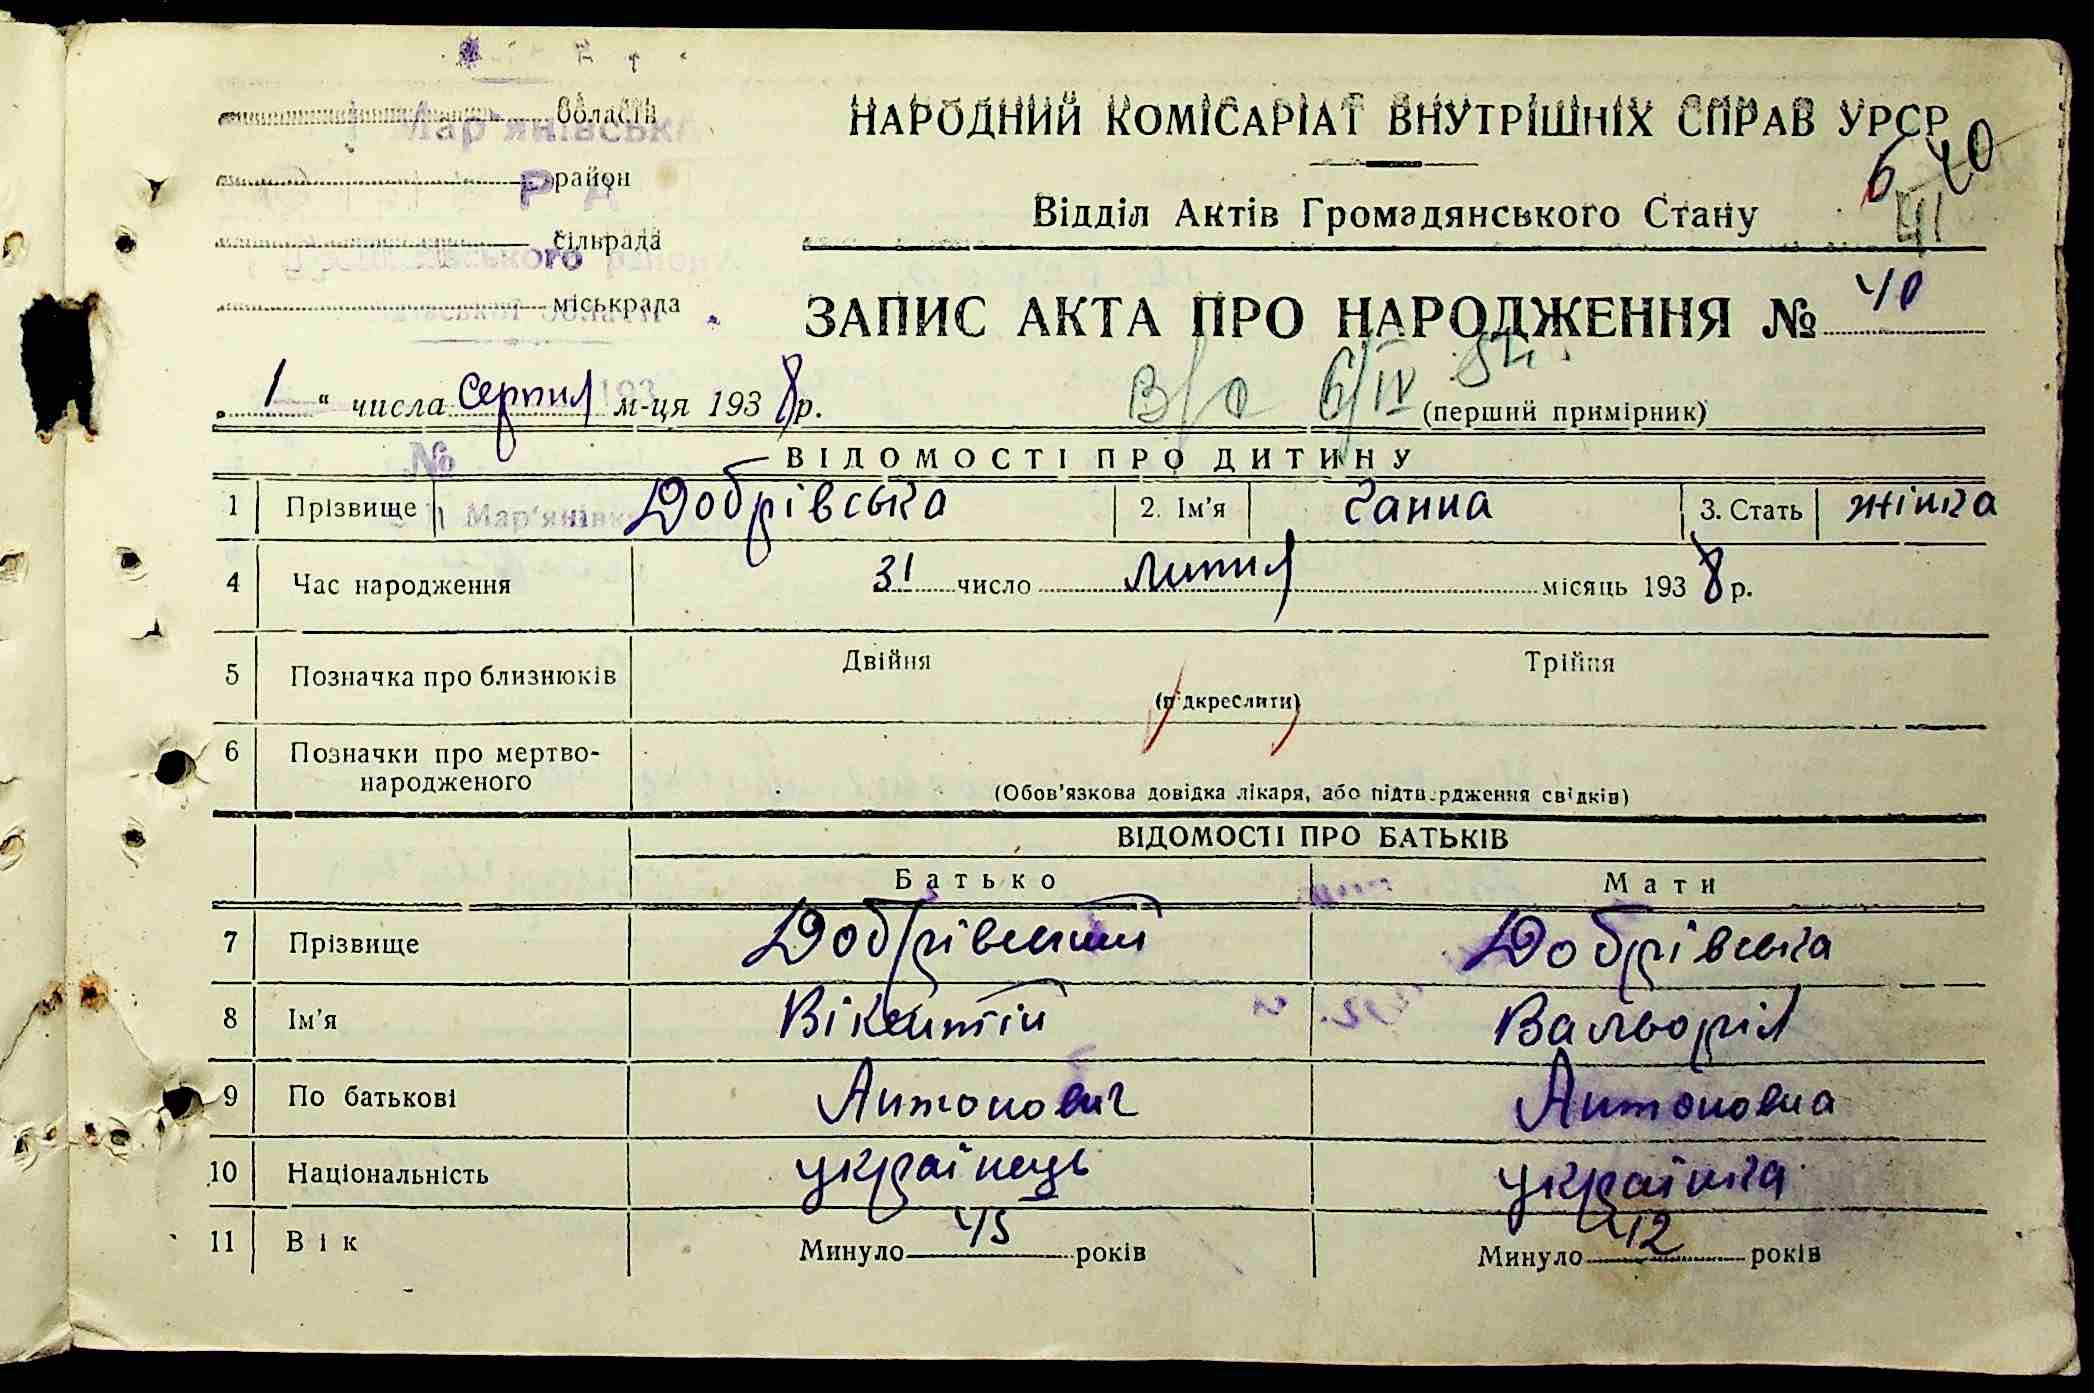 області
Мар'янівська
район
Р д
сільрада
ського району
міськрада
області
НАРОДНИЙ КОМІСАРІАТ ВНУТРІШНІХ СПРАВ УРСР
Відділ Актів Громадянського Стану
ЗАПИС АКТА ПРО НАРОДЖЕННЯ № 40
„ 1 “ числа серпня м-ця 1938 р.
В/О 6/IV
(перший примірник)
№
ВІДОМОСТІ ПРО ДИТИНУ
1 Прізвище Добрівська 2. Ім'я Ганна 3. Стать жінка
4 Час народження 31 число липня місяць 1938 р.
5 Позначка про близнюків Двійня Трійня
(підкреслити)
6 Позначки про мертво-
народженого
(Обов'язкова довідка лікаря, або підтвердження свідків)
ВІДОМОСТІ ПРО БАТЬКІВ
Батько Мати
7 Прізвище Добрівський Добрівська
8 Ім'я Вікентій Вальорія
9 По батькові Антонович Антоновна
10 Національність українець українка
11 Вік Минуло 45 років Минуло 42 років